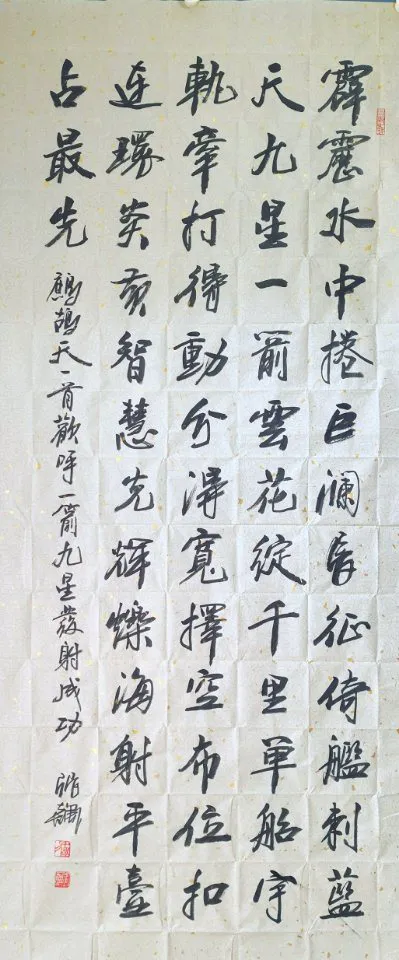 霹靂水中捲巨瀾長征倚艦刺藍
天九星一箭雲花綻千里單船宇
軌牽打得動分得寬擇空布位扣
連環炎黃智慧光輝爍海射平臺
占最先
鷓鴣天一首歡呼一箭九星發射成功